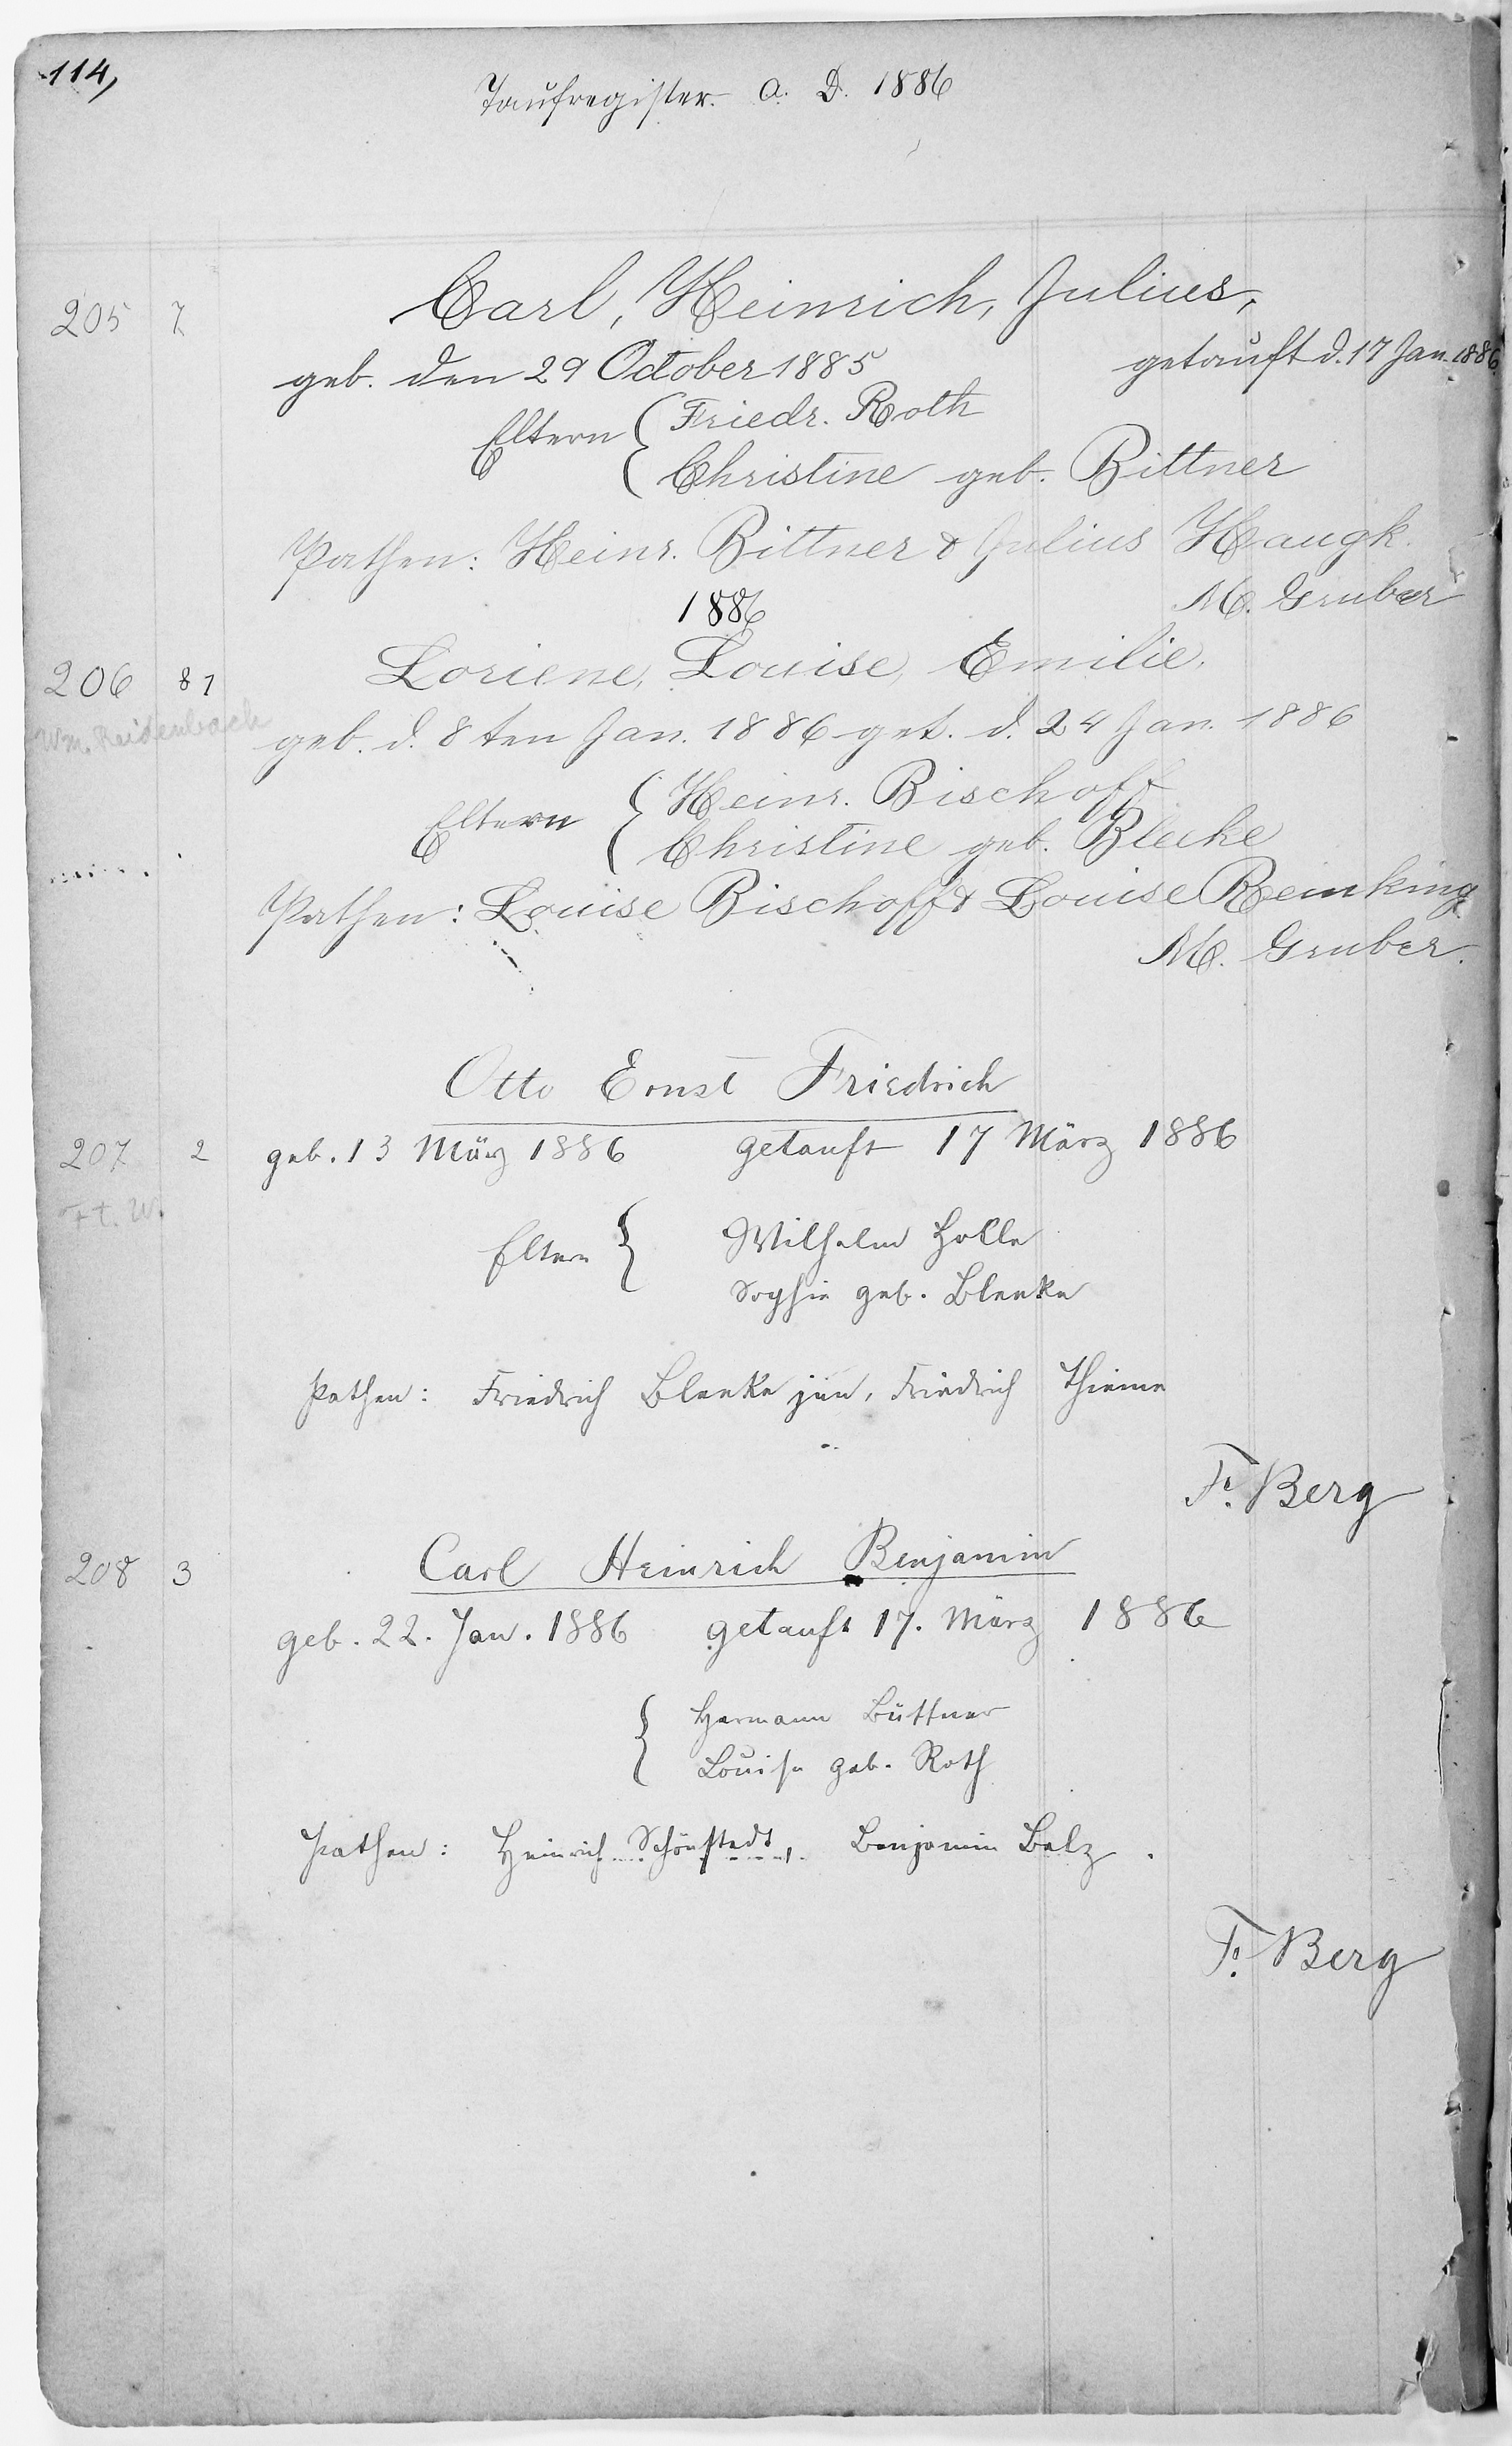 114,
Taufregister. A. D. 1886
205 7 Carl, Heinrich, Julius,
geb. den 29 October 1885 getauft d. 17 Jan. 1886.
Eltern { Friedr. Roth
Christine geb. Bittner
Pathen: Heinr. Bittner & Julius Haugk.
M. Gruber
1886
206 81 Loriene, Louise, Emilie.
Wm. Reidenbach
geb. d. 8ten Jan. 1886 get. d. 24 Jan. 1886
Eltern { Heinr. Bischoff
Christine geb. Bleeke
Pathen: Louise Bischoff & Louise Reinking
M. Gruber.
Otto Ernst Friedrich
207 2 geb. 13 März 1886 getauft 17 März 1886
Ft. W.
Eltern { Wilhelm Holle
Sophie geb. Bleeke
Pathen: Friedrich Bleeke jun, Friedrich Thieme
F. Berg
208 3 Carl Heinrich Benjamin
geb. 22. Jan. 1886 getauft 17. März 1886
{ Hermann Büttner
Louise geb. Roth
Pathen: Heinrich Schönstedt, Benjamin Bolz.
F. Berg